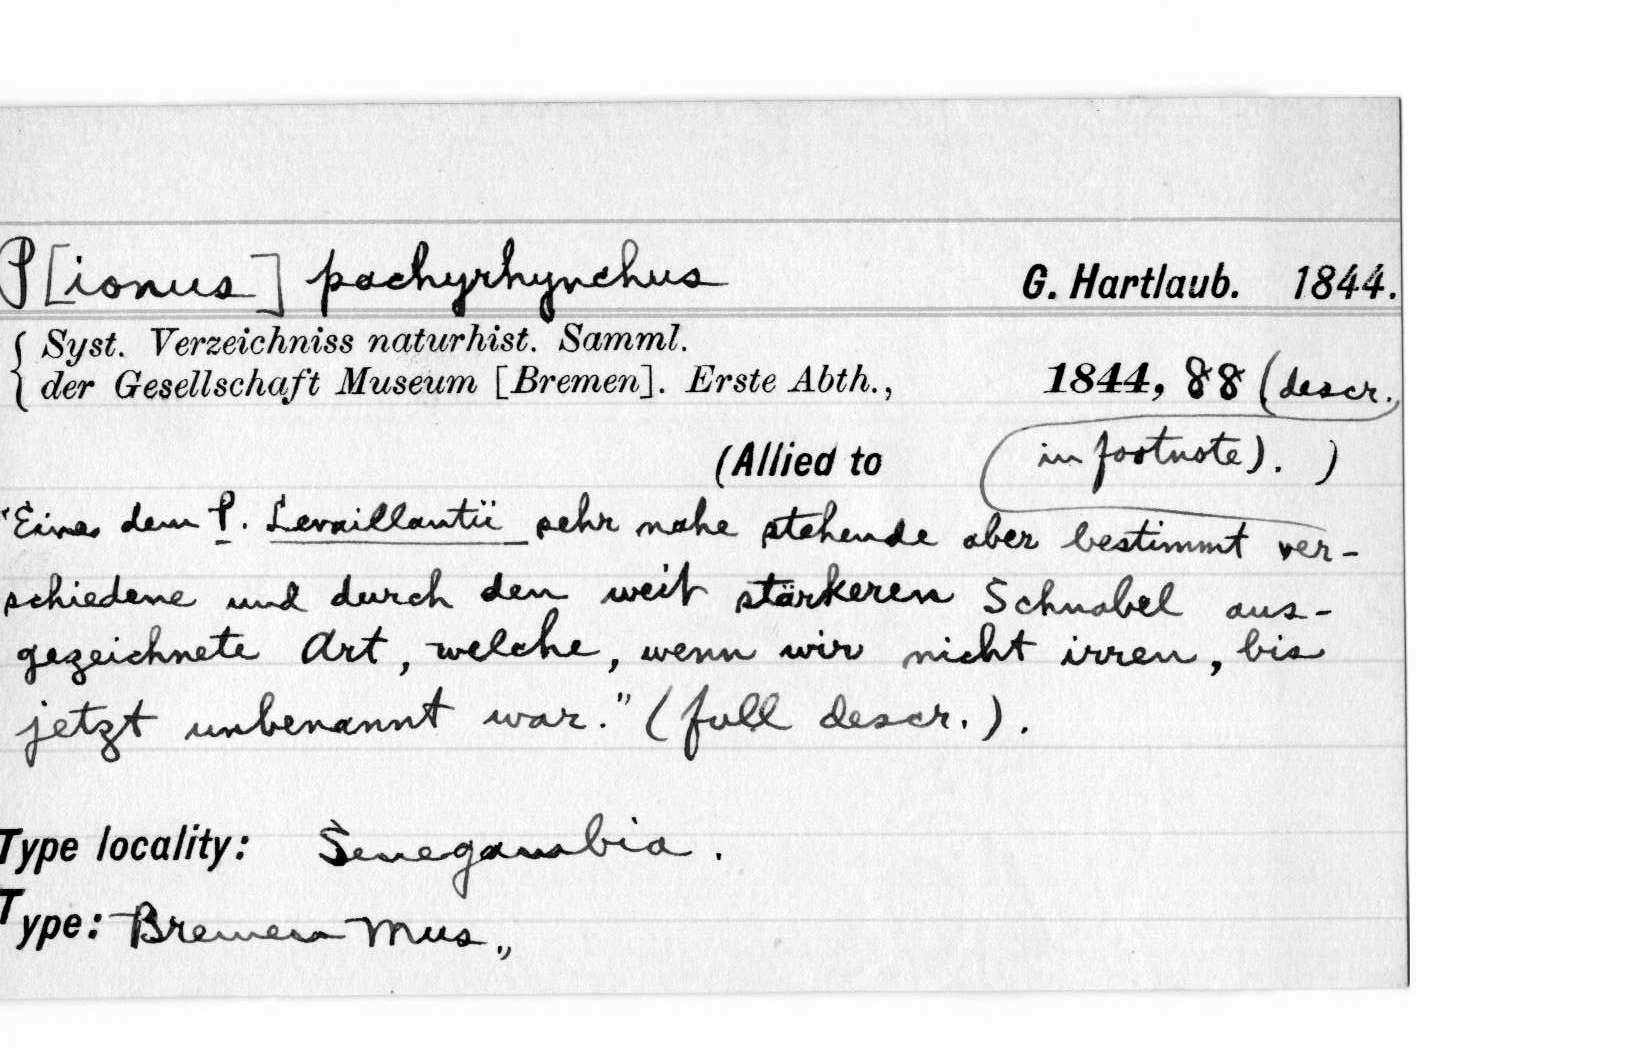 P[ionus] pachyrhynchus G. Hartlaub. 1844.
Syst. Verzeichniss naturhist. Samml.
der Gesellschaft Museum [Bremen]. Erste Abth., 1844, 88 (descr.
(Allied to in footnote). )
"Eine dem P. Levaillantii sehr nahe stehende aber bestimmt ver-
schiedene und durch den weit stärkeren Schnabel aus-
gezeichnete Art, welche, wenn wir nicht irren, bis
jetzt unbenannt war." (full descr.).
Type locality: Senegambia.
Type: Bremen Mus.,,